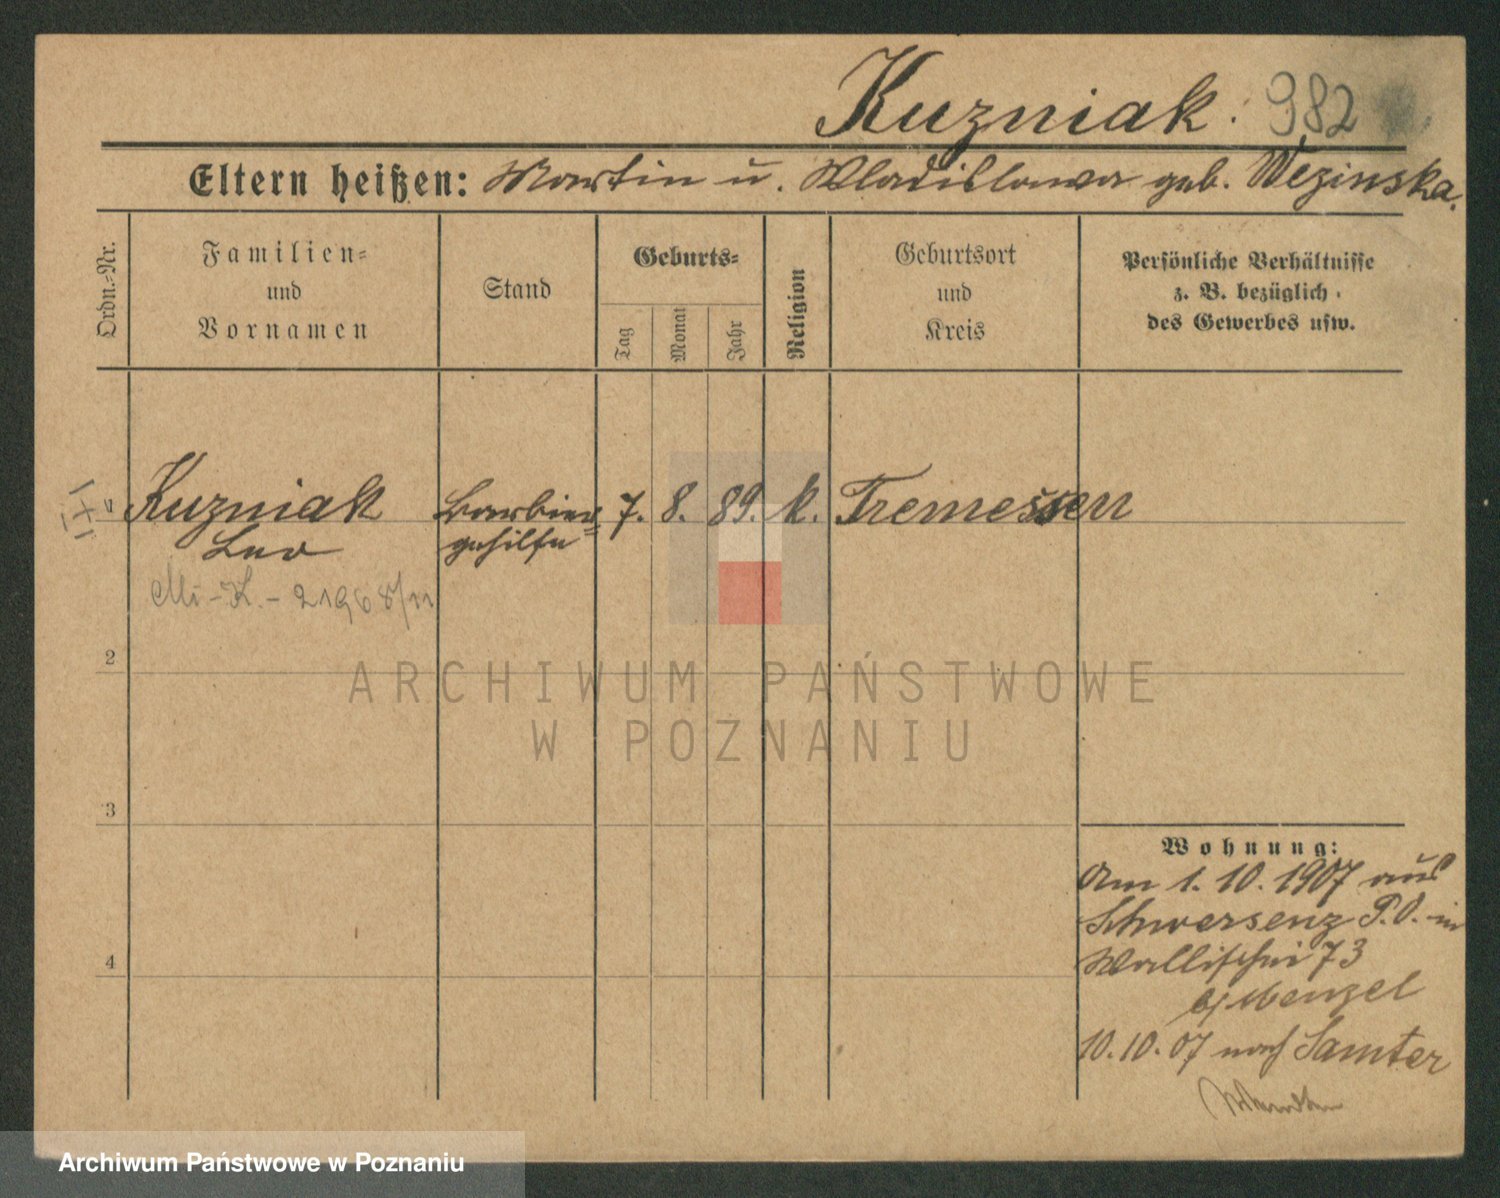 Kuzniak. 982
Eltern heißen: Martin u. Wladislawa geb. Wezinska.
Ordn.-Nr.
Familien-
und
Vornamen
Stand
Geburts-
Tag
Monat
Jahr
Religion
Geburtsort
und
Kreis
Persönliche Verhältnisse
z. B. bezüglich
des Gewerbes usw.
1 Kuzniak Barbier= 7. 8. 89. k. Tremessen
Leo gehilfe
Mi-K.-
2
3
4
Wohnung:
Am 1. 10. 1907 aus
Schwersenz P.O. in
Wallischei 73
b/ Menzel
10.10.07 nach Samter
ARCHIWUM PAŃSTWOWE
W POZNANIU
Archiwum Państwowe w Poznaniu